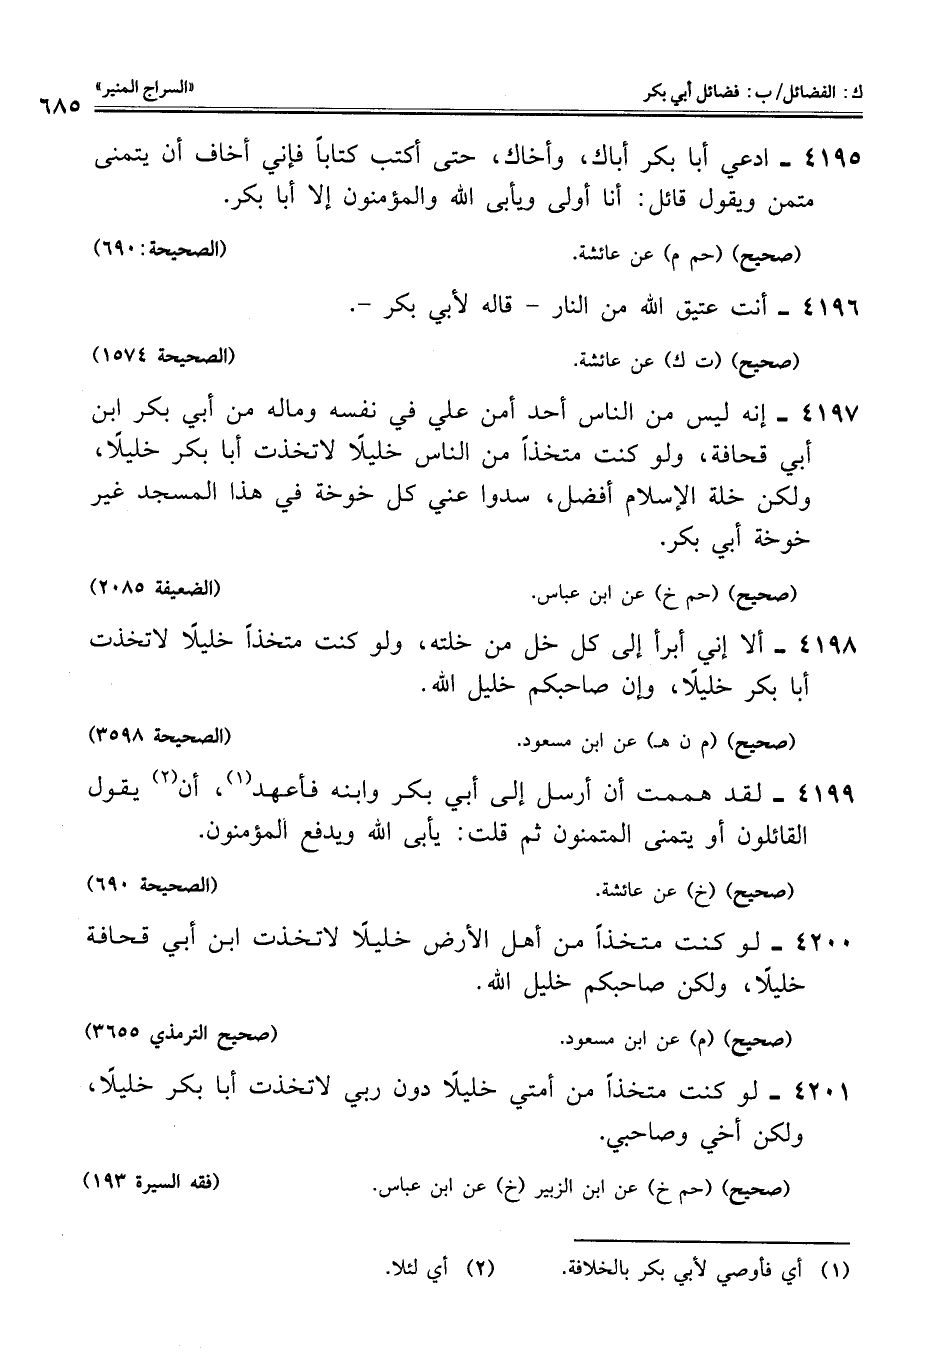 ك: الفضائل/ ب: فضائل أبي بكر «السراج المنير» ٦٨٥
٤١٩٥ ـ ادعي أبا بكر أباك، وأخاك، حتى أكتب كتاباً فإني أخاف أن يتمنى
متمن ويقول قائل: أنا أولى ويأبى الله والمؤمنون إلا أبا بكر.
(صحيح) (حم م) عن عائشة. (الصحيحة: ٦٩٠)
٤١٩٦ ـ أنت عتيق الله من النار – قاله لأبي بكر –.
(صحيح) (ت ك) عن عائشة. (الصحيحة ١٥٧٤)
٤١٩٧ ـ إنه ليس من الناس أحد أمن علي في نفسه وماله من أبي بكر ابن
أبي قحافة، ولو كنت متخذاً من الناس خليلًا لاتخذت أبا بكر خليلًا،
ولكن خلة الإسلام أفضل، سدوا عني كل خوخة في هذا المسجد غير
خوخة أبي بكر.
(صحيح) (حم خ) عن ابن عباس. (الضعيفة ٢٠٨٥)
٤١٩٨ ـ ألا إني أبرأ إلى كل خل من خلته، ولو كنت متخذاً خليلًا لاتخذت
أبا بكر خليلًا، وإن صاحبكم خليل الله.
(صحيح) (م ن هـ) عن ابن مسعود. (الصحيحة ٣٥٩٨)
٤١٩٩ ـ لقد هممت أن أرسل إلى أبي بكر وابنه فأعهد(١)، أن(٢) يقول
القائلون أو يتمنى المتمنون ثم قلت: يأبى الله ويدفع المؤمنون.
(صحيح) (خ) عن عائشة. (الصحيحة ٦٩٠)
٤٢٠٠ ـ لو كنت متخذاً من أهل الأرض خليلًا لاتخذت ابن أبي قحافة
خليلًا، ولكن صاحبكم خليل الله.
(صحيح) (م) عن ابن مسعود. (صحيح الترمذي ٣٦٥٥)
٤٢٠١ ـ لو كنت متخذاً من أمتي خليلًا دون ربي لاتخذت أبا بكر خليلًا،
ولكن أخي وصاحبي.
(صحيح) (حم خ) عن ابن الزبير (خ) عن ابن عباس. (فقه السيرة ١٩٣)
(١) أي فأوصي لأبي بكر بالخلافة. (٢) أي لئلا.